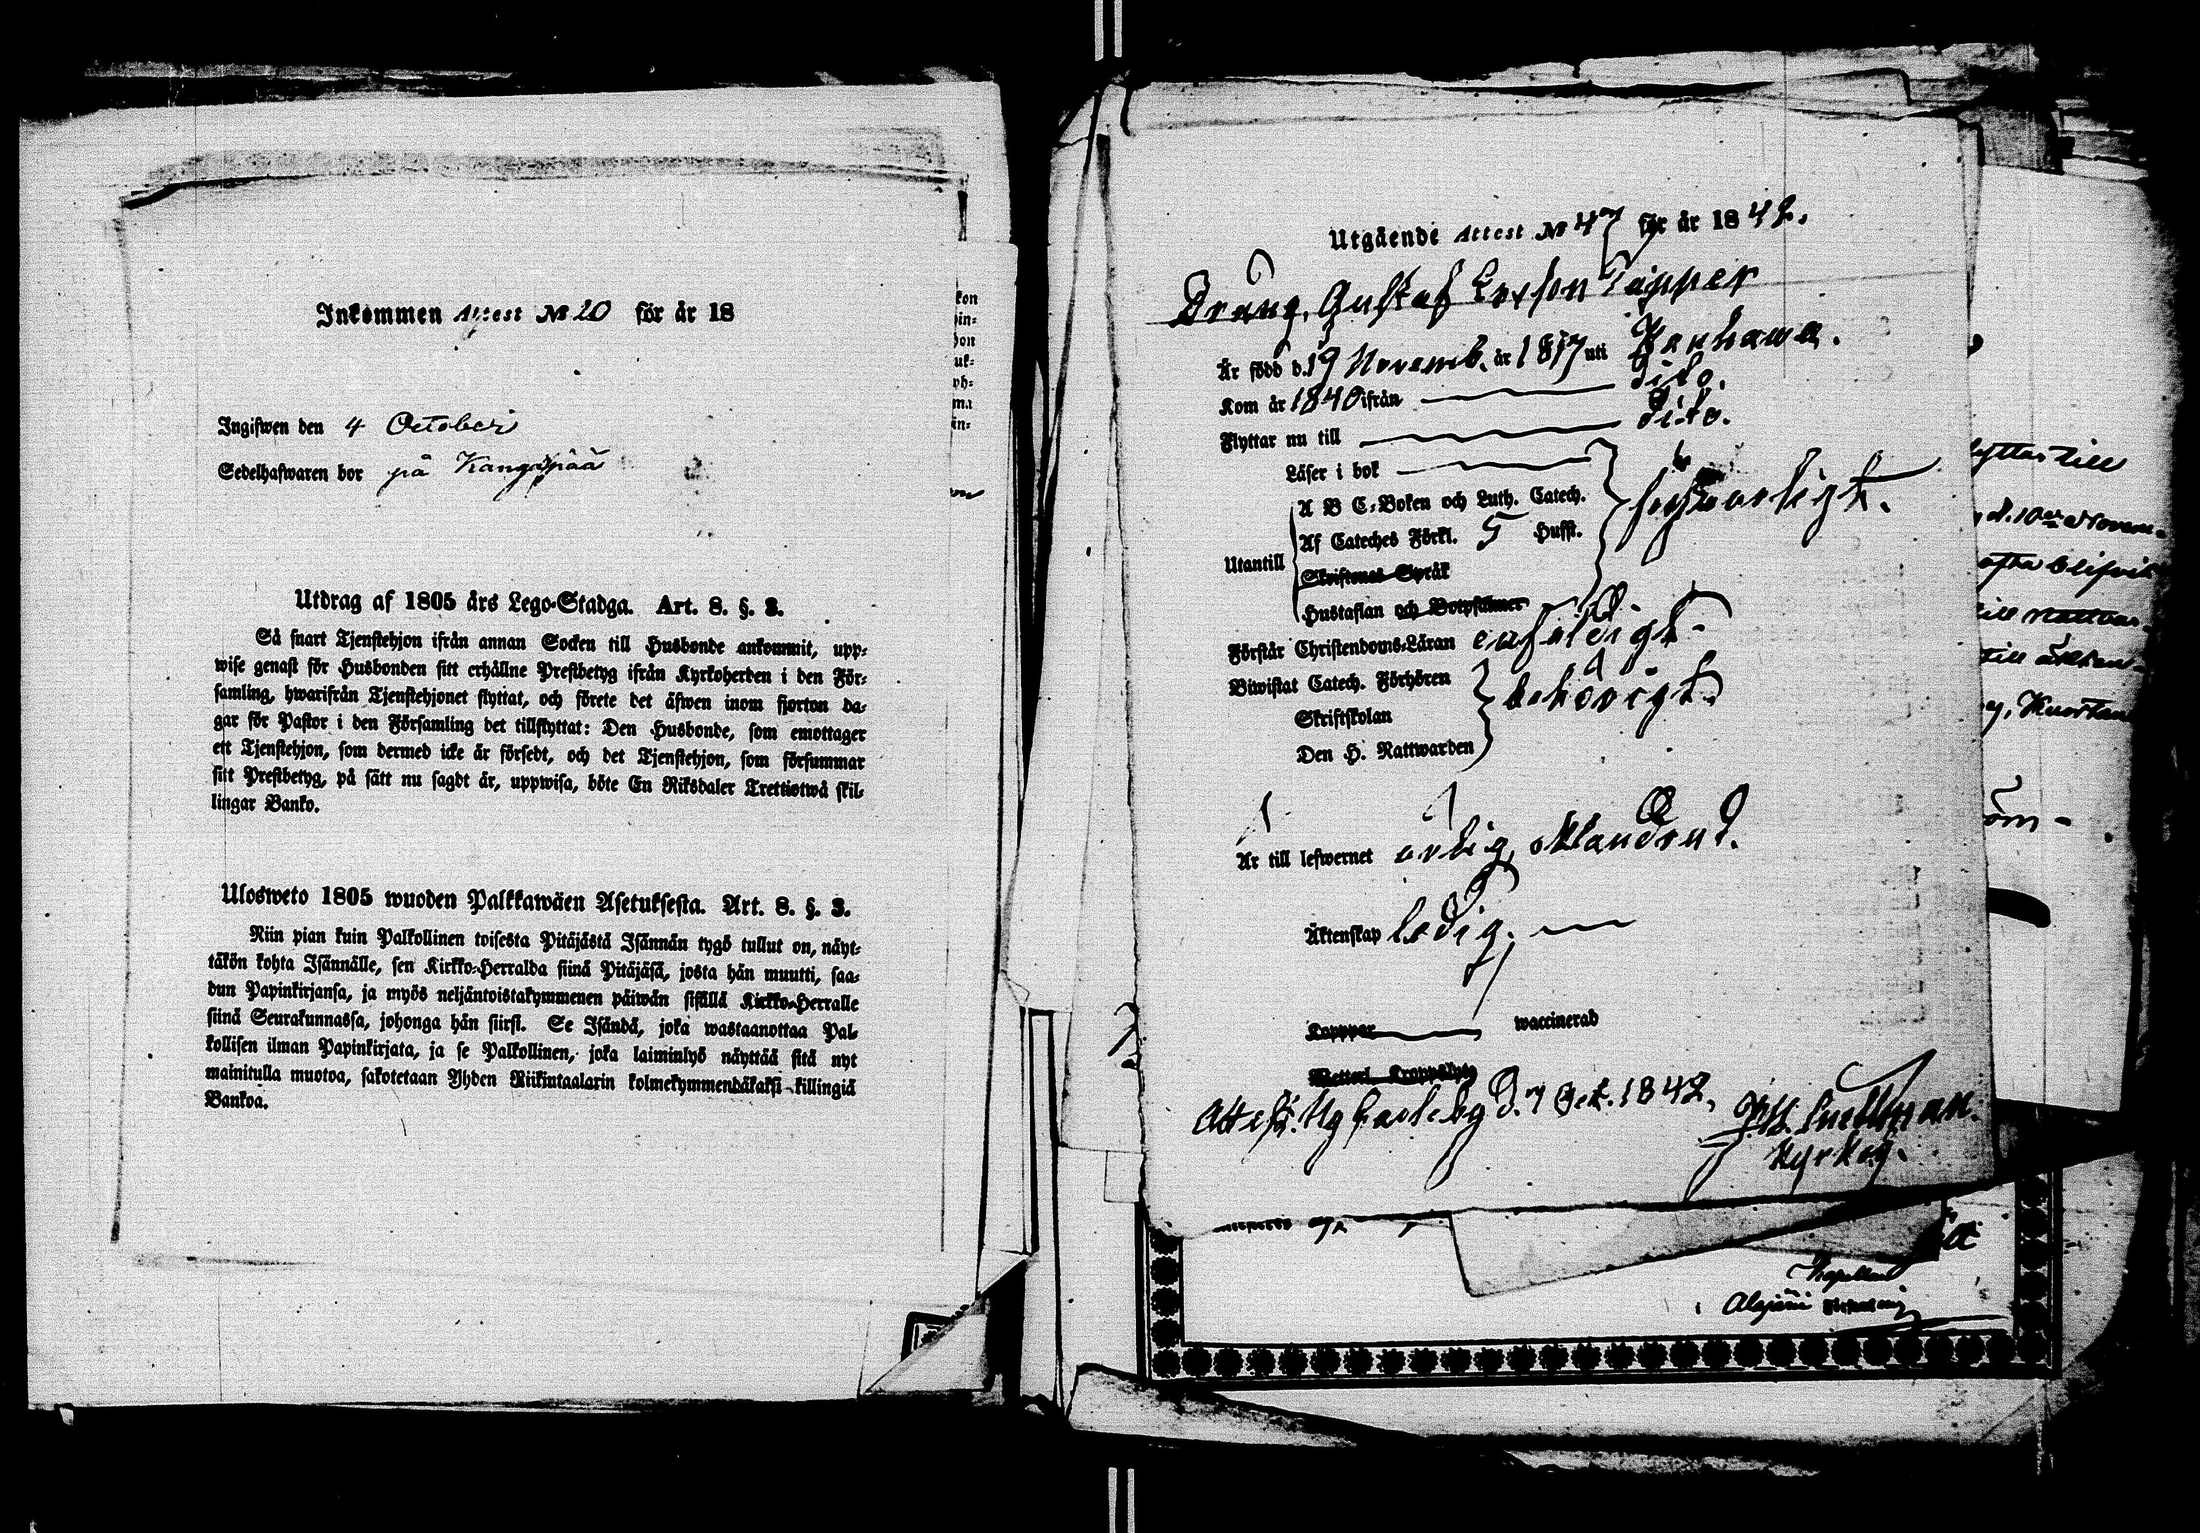 Inkommen Attest No 20 för år 18
Ingifwen den 4 October
Sedelhafwaren bor på Kangaspää
Utdrag af 1805 års Lego-Stadga. Art. 8. §. 3.
Så snart Tjenstehjon ifrån annan Socken till Husbonde ankommit, upp-
wise genast för Husbonden sitt erhållne Prestbetyg ifrån Kyrkoherden i den För-
samling, hwarifrån Tjenstehjonet flyttat, och förete det äfwen inom fjorton da-
gar för Pastor i den Församling det tillflyttat: Den Husbonde, som emottager
ett Tjenstehjon, som dermed icke är försedt, och det Tjenstehjon, som försummar
sitt Prestbetyg, på sätt nu sagdt är, uppwisa, böte En Riksdaler Trettiotwå skil-
lingar Banko.
Ulosweto 1805 wuoden Palkkawäen Asetuksesta. Art. 8. §. 3.
Niin pian kuin Palkollinen toisesta Pitäjästä Isännän tygö tullut on, näyt-
täkön kohta Isännälle, sen Kirkko-Herralda siinä Pitäjäsä, josta hän muutti, saa-
dun Papinkirjansa, ja myös neljäntoistakymmenen päiwän sisällä Kirkko-Herralle
siinä Seurakunnassa, johonga hän siirsi. Se Isändä, joka wastaanottaa Pal-
kollisen ilman Papinkirjata, ja se Palkollinen, joka laiminlyö näyttää sitä nyt
mainitulla muotoa, sakotetaan Yhden Riikintaalarin kolmekymmendäkaksi killingiä
Bankoa.
Utgående Attest No 47 för år 1842.
Dräng, Gustaf Tapper
Är född d. 19 Novemb. år 1817 uti Kauhawa.
Kom år 1840 ifrån dito.
Flyttar nu till dito.
Läser i bok
A B C-Boken och Luth. Catech.
Af Cateches Förkl. 5 Hufst. förswarligt.
Utantill
Skriftenes Språk
Hustaflan och Botpsalmer
Förstår Christendoms-Läran enfaldigt
Biwistat Catech. Förhören
Skriftskolan behörigt.
Den H. Nattwarden
Är till lefwernet ärlig, oklandrad.
Äktenskap ledig.
Koppor waccinerad
Attest. Ny Carleby d. 1 Oct. 1842.
Snellman.
Kyrkoh.
Kapellan
Alajärvi
flyttar till
d. 10de Novem-
ofta blifvit
till Nattvar-
till äkten-
Kuortane